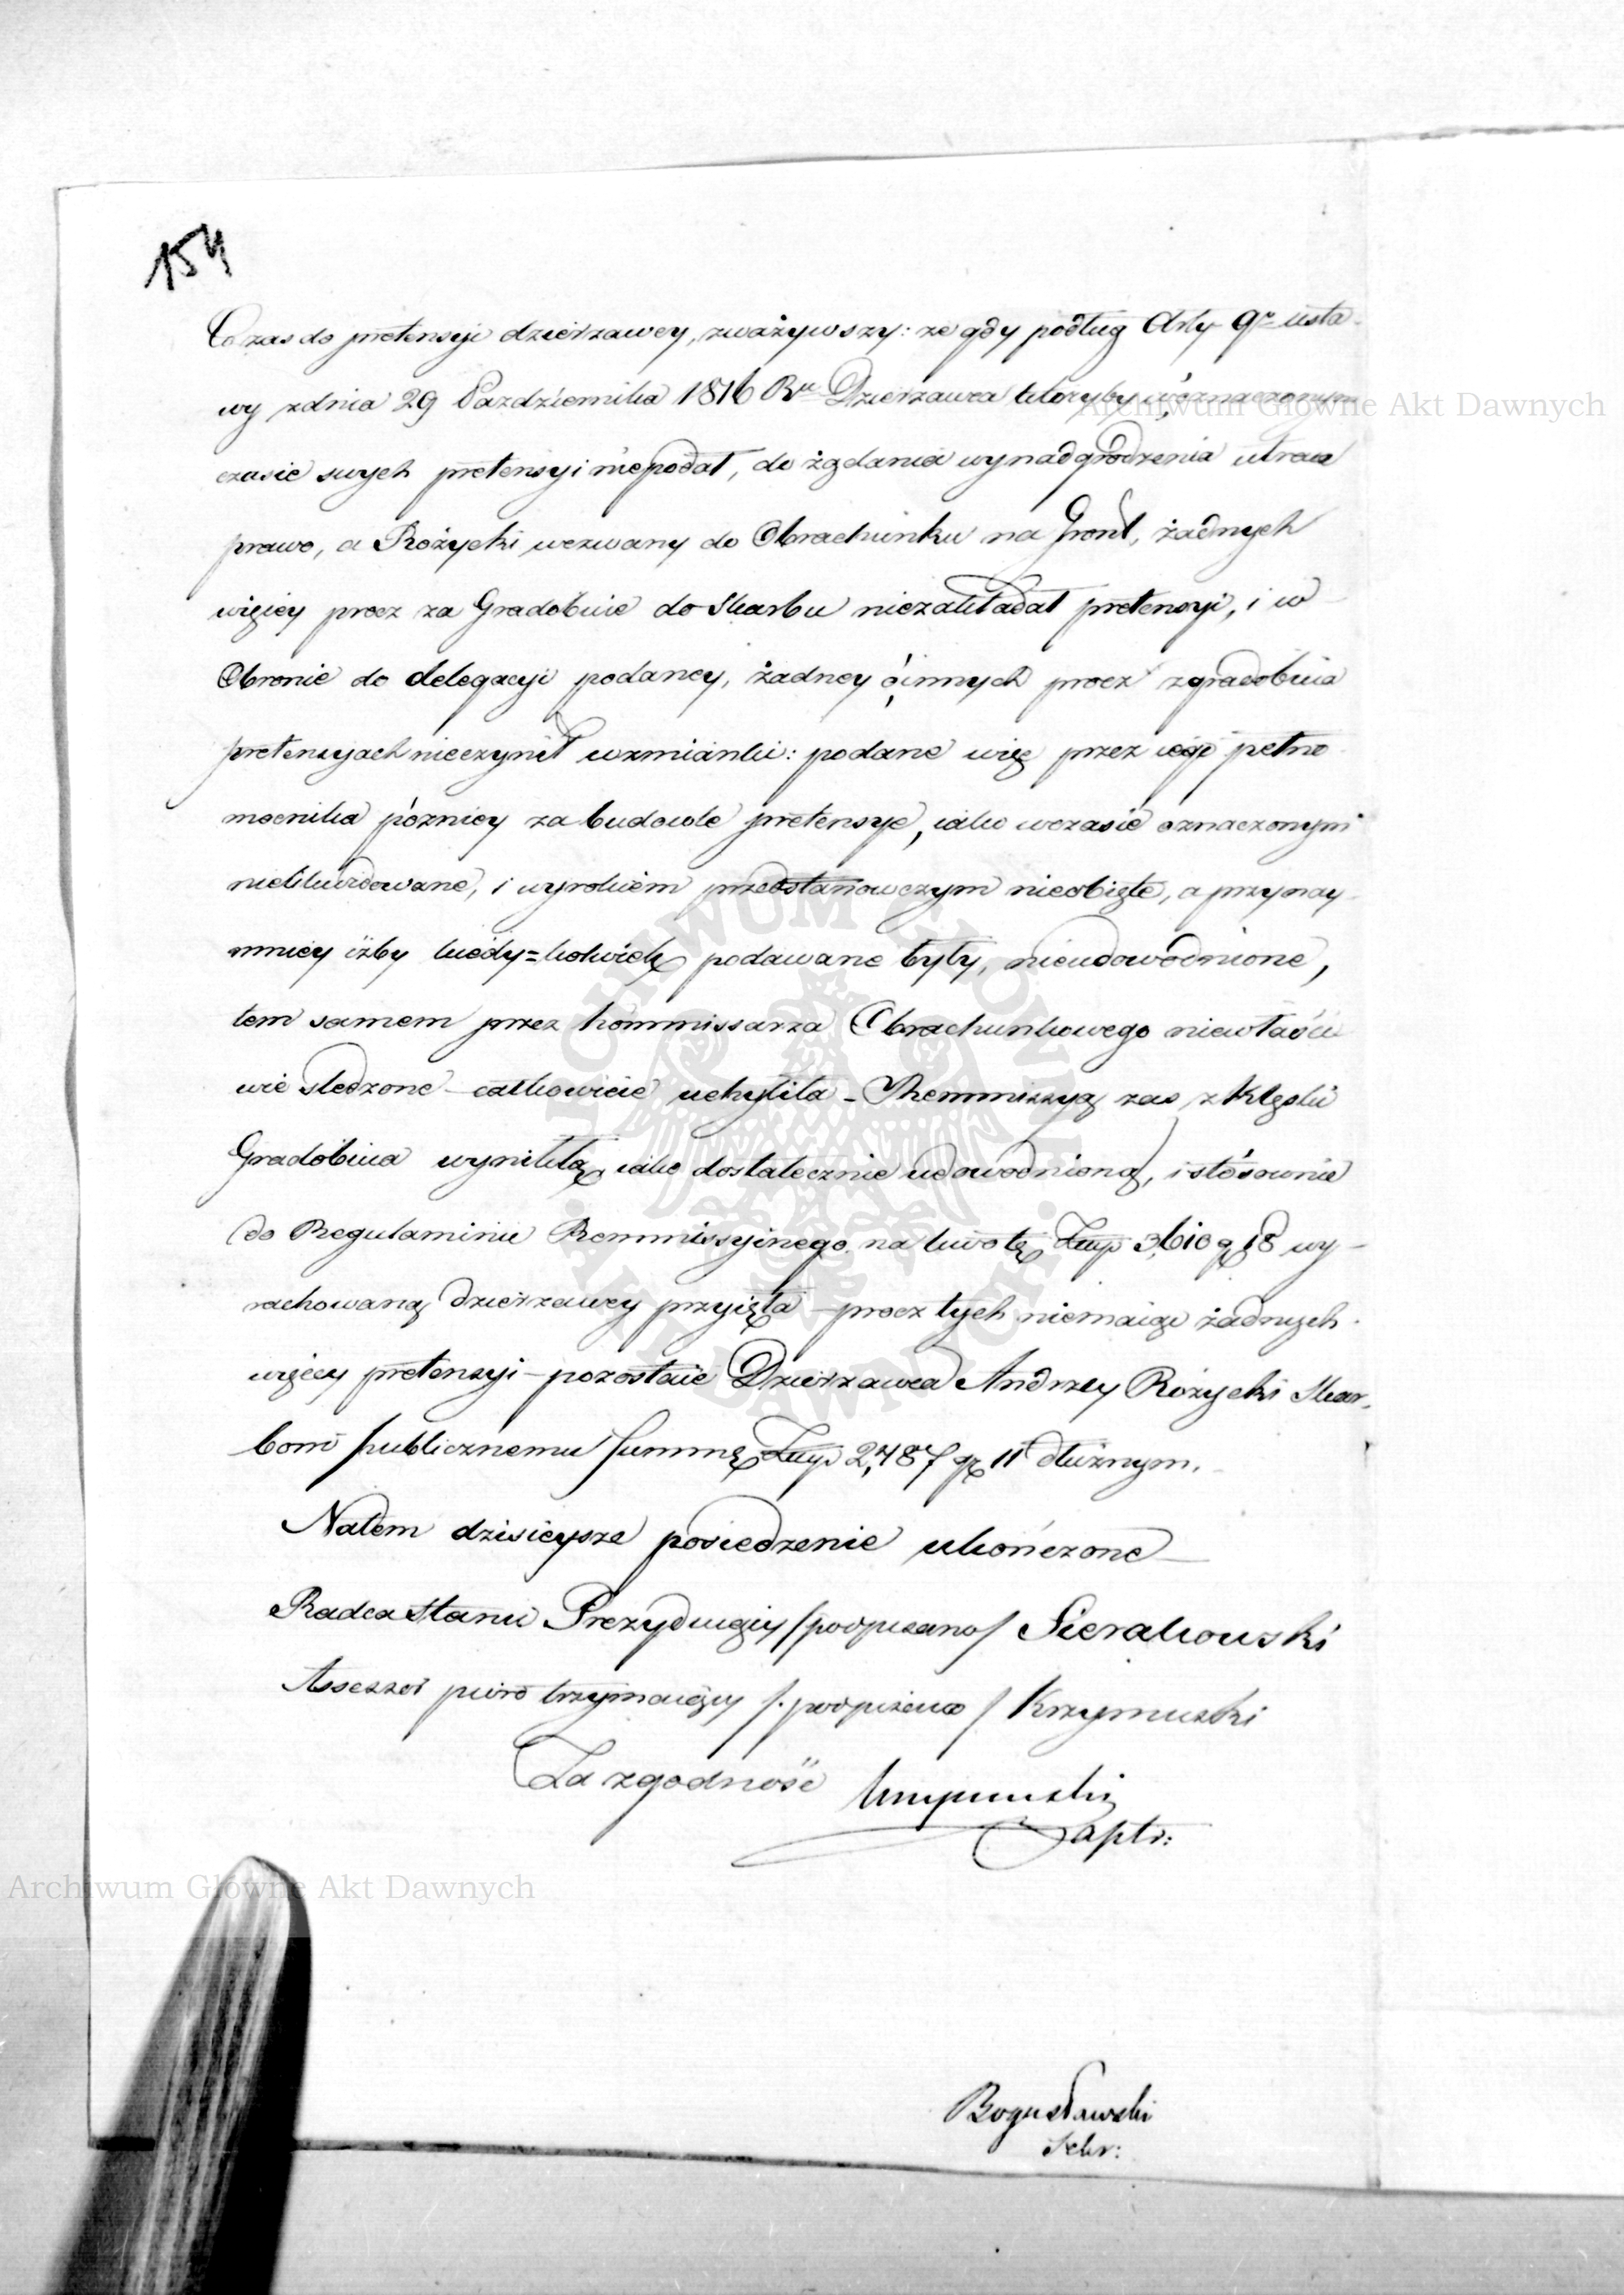 154
Co zas do pretensyi dzierzawcy, zważywszy: że gdy podług Arty 9º usta-
wy z dnia 29 Pazdziernika 1816 Ru Dzierżawca któryby w oznaczonym
czasie swych pretensyi niepodał, do żądania wynadgrodzenia utraca
prawo, a Różycki wezwany do Obrachunku na Gront, żadnych
więcey procz za Gradobicie do Skarbu niezakładał pretensyi, i w
Obronie do delegacyi podaney, żadney o innych procz zgradobicia
pretensyach nieczynił wzmianki: podane więc przez iego pełno-
mocnika pózniey za budowle pretensye, iako wczasie oznaczonym
nielikwidowane, i wyrokiem przedstanowczym nieobięte, a przynay-
mniey iżby kiedy=kolwiek podawane były, nieudowodnione,
tem samem przez Kommissarza Obrachunkowego niewłaści-
wie sledzone – całkowicie uchyliła – Remmissyą zas z Klęski
Gradobicia wynikłą, iako dostatecznie udowodnioną, i stósownie
do Regulaminu Remmissyinego na kwotę Złłp 3,610 g 18 wy-
rachowaną dzierzawcy przyięła – procz tych niemaiąc żadnych
więcey pretensyi – pozostaie Dzierzawca Andrzey Różycki Skar-
bowi publicznemu Summę Złłp 2,787 gr 11 dłużnym.
Natem dzisieysze posiedzenie ukończone
Radca Stanu Prezyduiący /podpisano/ Sierakowski
Assessor pióro trzymaiący /podpisano/ Krzymuski
Za zgodność Krzymuski
Boguslawski
Sekr:
Archiwum Główne Akt Dawnych
Archiwum Główne Akt Dawnych